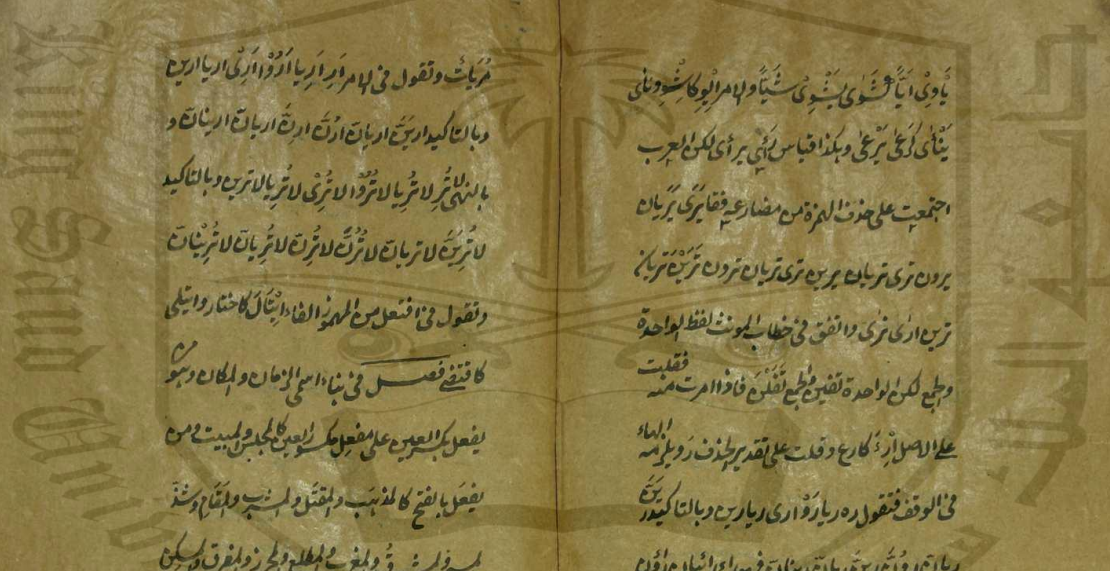 يَأوِىْ اَيًّا كَشَوٰى يَشْوِىْ شَيًّا والامر اِيْوِ كاشْوِ ونأى
يَنْأى كَرَعٰى يَرْعٰى وهكذا قياس رَأى يرأى لكن العرب
اجتمعت على حذف الهمزة من مضارعه فقا يَرٰى يَرَيان
يرون ترى تريان يرين ترى تريان ترون تَرَيْنَ تريان
ترين ارى نرى واتفق فى خطاب المونث لفظ الواحدة
والجمع لكن الواحدة تفين والجمع تَفَلْنَ فاذا امرت منه فقلت
على الاصل اِرْءَ كارع وقلت على تقدير الحذف رَ ويلزمه الهاء
فى الوقف فتقول ره ريا رَوْا رى ريا رين وبالتاكيد رَيَنَّ
مُرَيَاتٌ وتقول فى الامر اَرِ اَرِيا اَرُوْا اَرِىْ اريا ارين
وبالتاكيد ارِيَنَّ اريانّ ارُنَّ ارِنَّ اريانّ ارينانّ و
بالنهى لا تُرِ لا تُرِيا لا تُرُوْا لا تُرِىْ لا تُرِيا لا ترين وبالتاكيد
لا تُرِيَنَّ لا تريانّ لا تُرُنَّ لا تُرِنّ لا تُرِيانّ لا تُرِيْنانّ
وتقول فى افتعل من المهموز الفاء اِيْتَالَ كاختار وايتلى
كاقتضى فصل فى بناء اسمى الزمان والمكان وهو من
يفعل بكسر العين على مفعِل بكسر العين كالمجلس والمبيت ومن
يفعَل بالفتح كالمذهَب والمقتَل والمشرَب والمَقَام وشذّ